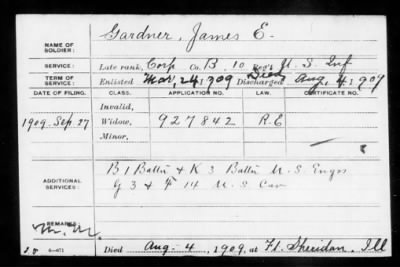 Gardner, James E.
NAME OF
SOLDIER:
SERVICE: Late rank, Corp Co. B, 10 Reg't U. S. Inf
TERM OF
SERVICE: Enlisted Mar, 24, 1909 Died Discharged Aug, 4, 1909
DATE OF FILING. CLASS. APPLICATION NO. LAW. CERTIFICATE NO.
Invalid,
1909. Sep. 27 Widow, 927842 R.E
Minor,
ADDITIONAL
SERVICES:
B 1 Battn & K 3 Battn U. S. Engrs
G 3 & F 14 U. S. Cav
REMARKS:
Died Aug - 4, 1909, at Ft. Sheridan, Ill